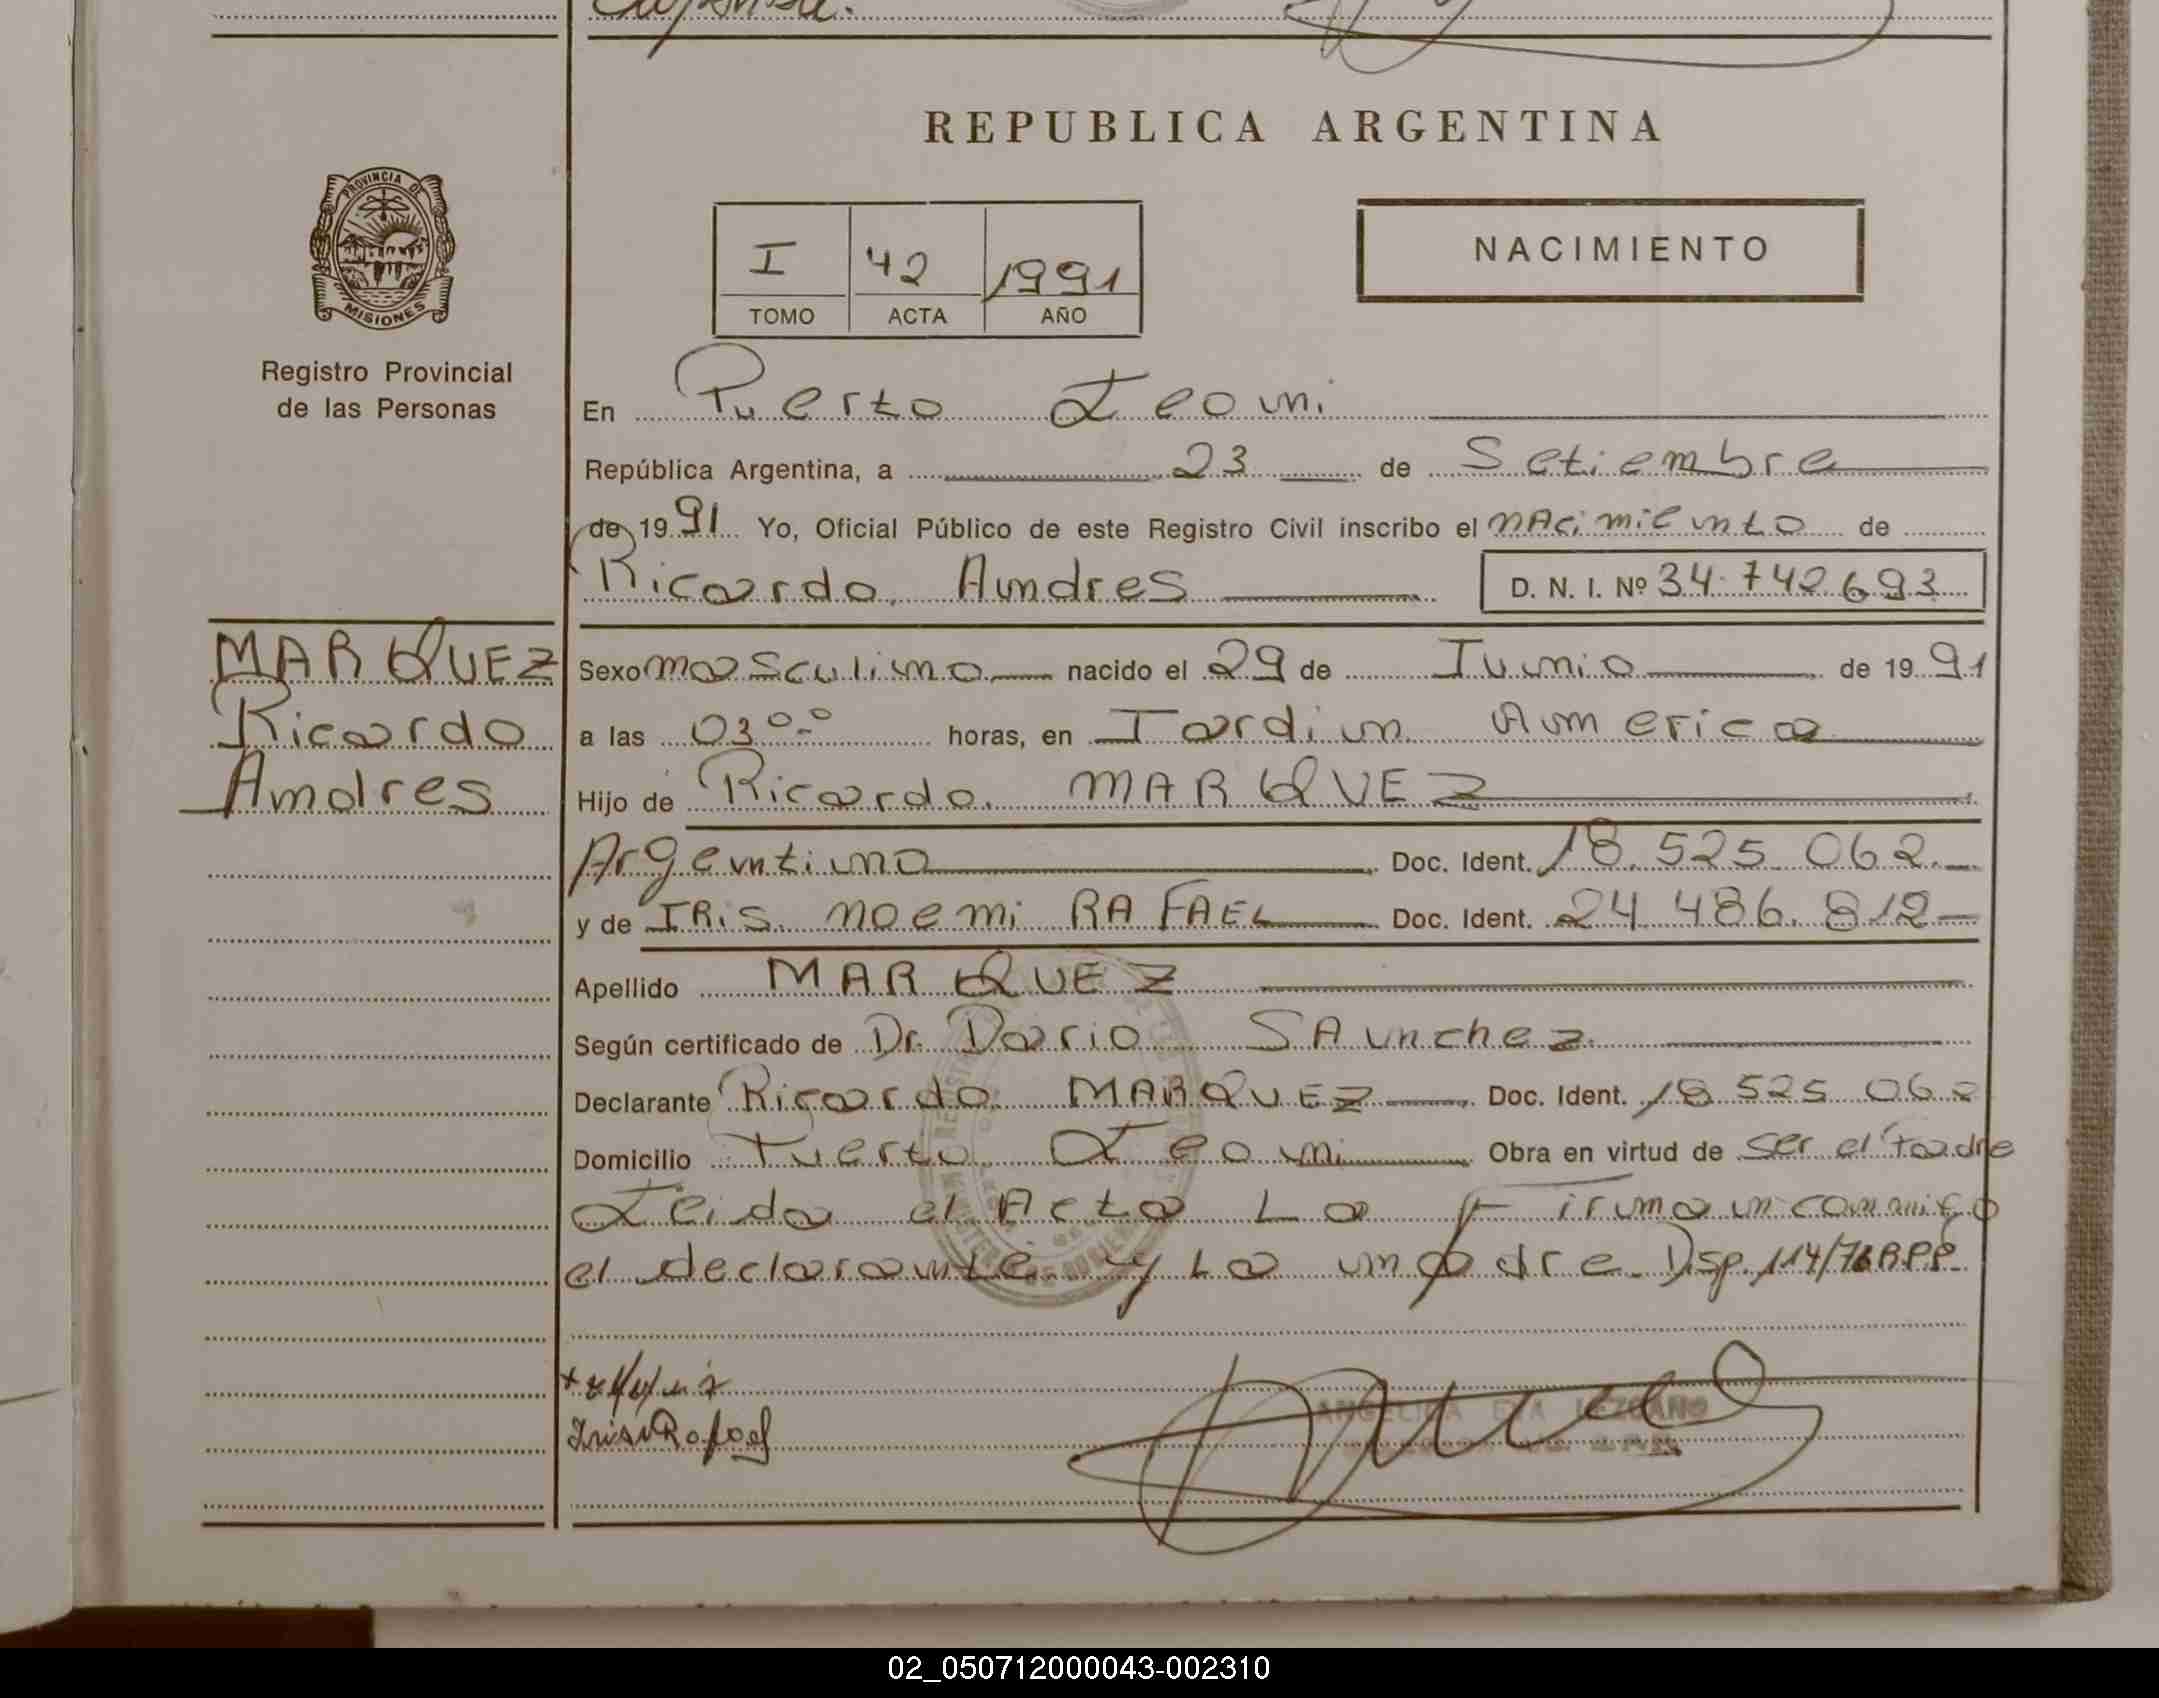 REPUBLICA ARGENTINA
PROVINCIA DE
MISIONES
Registro Provincial
de las Personas
I 42 1991
TOMO ACTA AÑO
NACIMIENTO
En Puerto Leoni
República Argentina, a 23 de Setiembre
de 1991 Yo, Oficial Público de este Registro Civil inscribo el nacimiento de
Ricardo Andres D. N. I. Nº 34.742693
MARQUEZ
Ricardo
Andres
Sexo masculino nacido el 29 de Junio de 1991
a las 03⁰⁰ horas, en Jardin America
Hijo de Ricardo MARQUEZ
Argentino Doc. Ident. 18.525.062.
y de IRis Noemi RAFAEL Doc. Ident. 24.486.812
Apellido MARQUEZ
Según certificado de Dr. Dario SAnchez
Declarante Ricardo MARQUEZ Doc. Ident. 18.525.062
Domicilio Puerto Leoni Obra en virtud de ser el Padre
Leida el Acta La Firman conmigo
el declarante y La madre. Disp. 114/76 R.P.P.
Iris Rafael
ANGELICA EVA LEZCANO
02_050712000043-002310